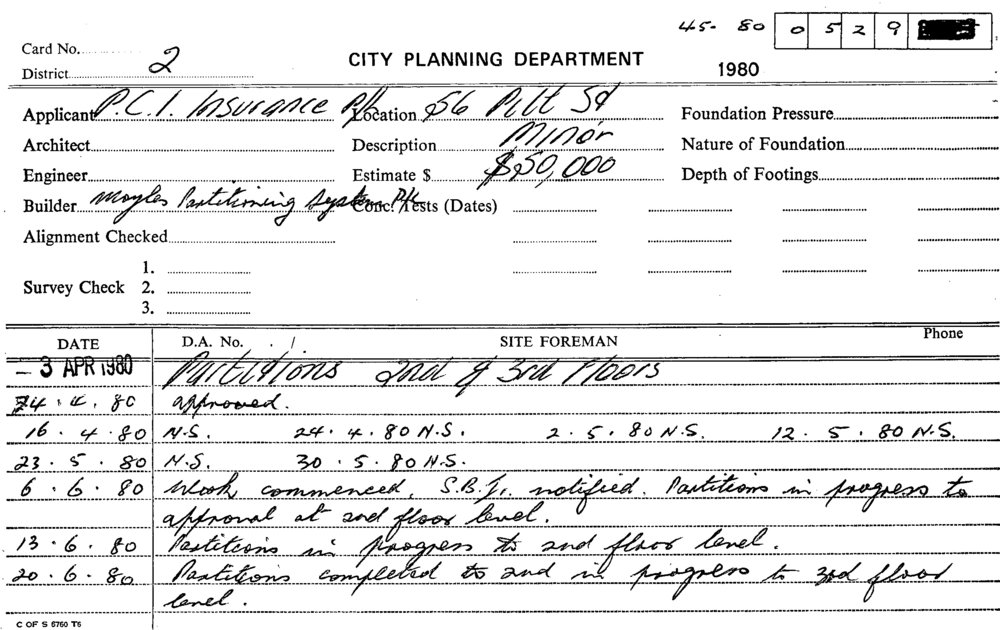 45. 80 0 5 2 9
Card No.
District 2
CITY PLANNING DEPARTMENT
1980
Applicant P.C.I. Insurance P/L Location 56 Pitt St Foundation Pressure
Architect Description Minor Nature of Foundation
Engineer Estimate $ $50,000 Depth of Footings
Builder Moyles Partitioning System P/L Conc. Tests (Dates)
Alignment Checked
1.
Survey Check 2.
3.
DATE D.A. No. . / SITE FOREMAN Phone
- 3 APR 1980 Partitions 2nd & 3rd Floors
4. 80 approved.
16. 4. 80 N.S. 24. 4. 80 N.S. 2. 5. 80 N.S. 12. 5. 80 N.S.
23. 5. 80 N.S. 30. 5. 80 N.S.
6. 6. 80 Work commenced, notified. Partitions in progress to
approval at 2nd floor level.
13. 6. 80 Partitions in progress to 2nd floor level.
20. 6. 80 Partitions completed to 2nd in progress to 3rd floor
level.
C OF S 6760 T6